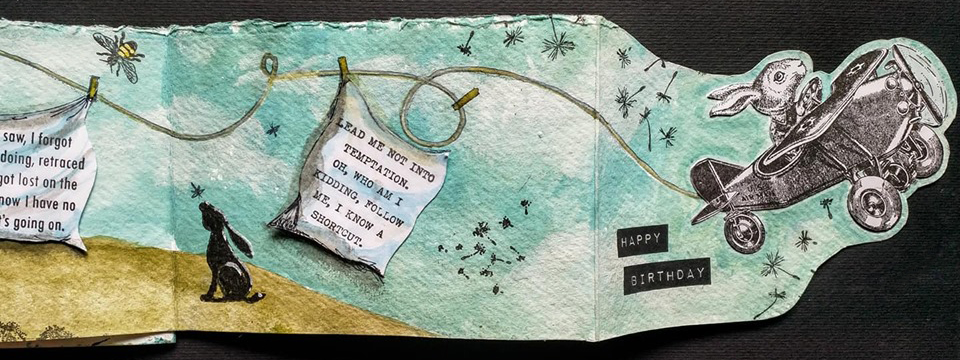 saw, I forgot
doing, retraced
got lost on the
now I have no
t's going on.
LEAD ME NOT INTO
TEMPTATION.
OH, WHO AM I
KIDDING, FOLLOW
ME, I KNOW A
SHORTCUT.
HAPPY
BIRTHDAY